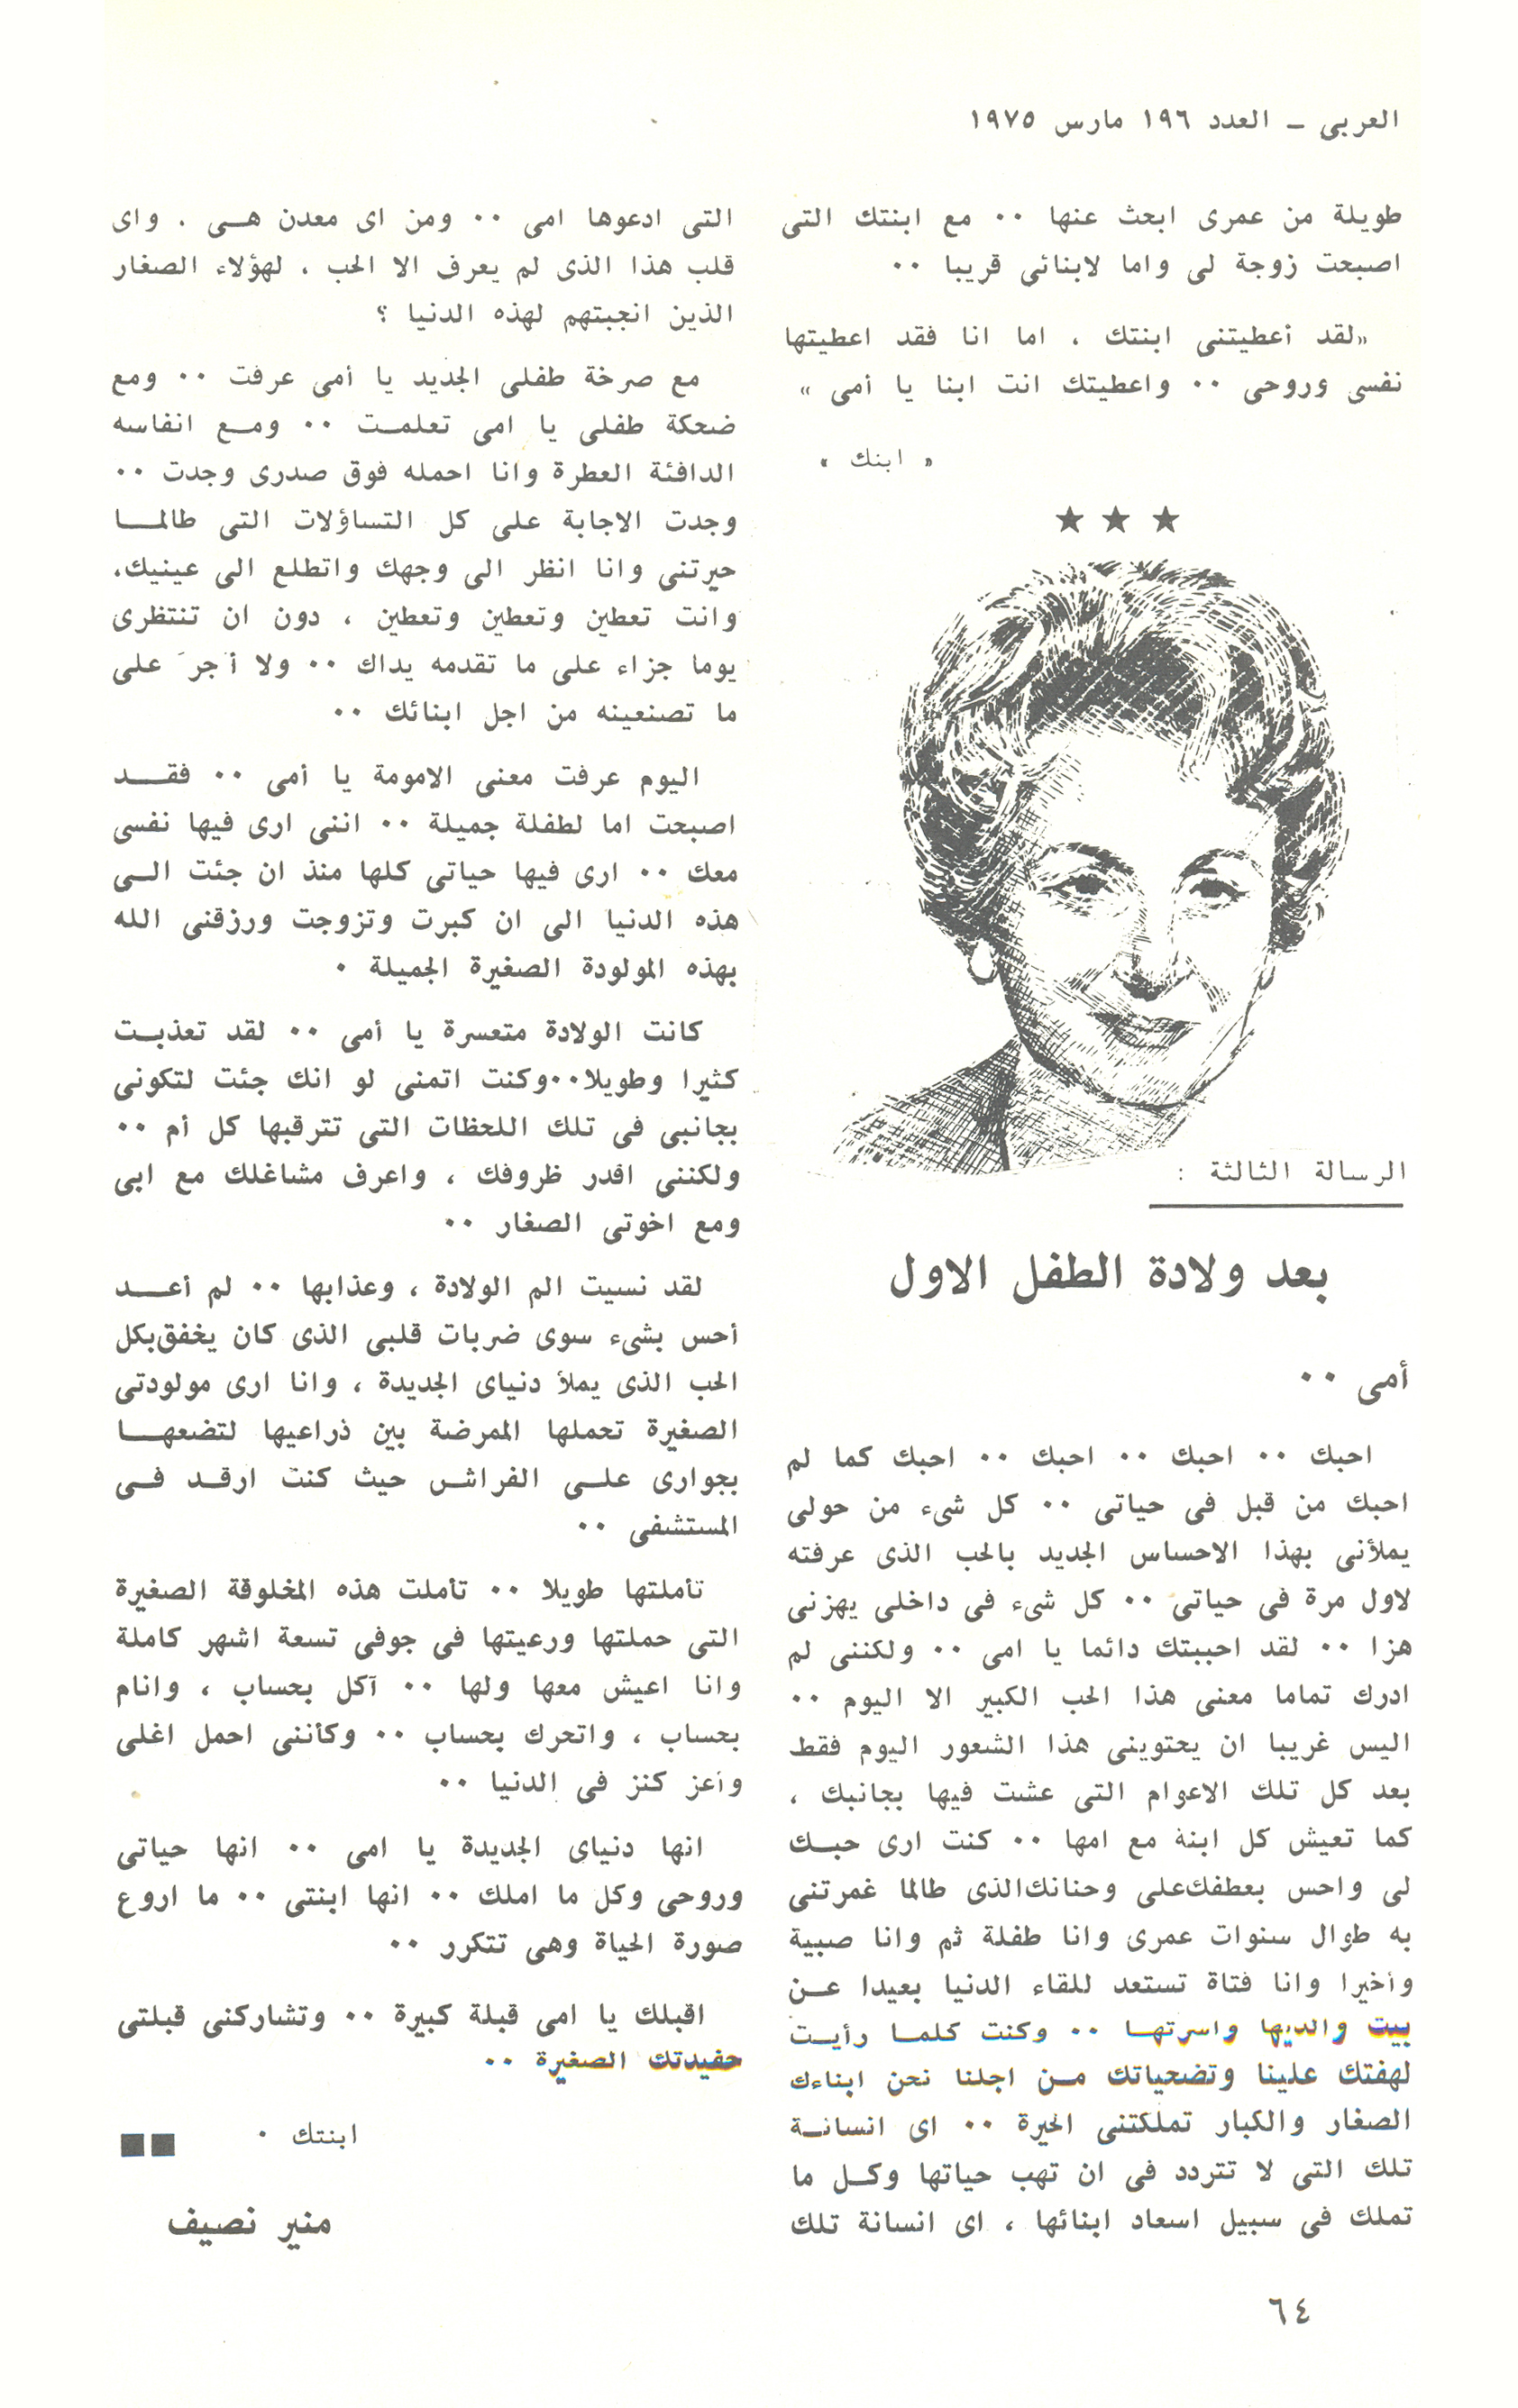 العربى – العدد ١٩٦ مارس ١٩٧٥
طويلة من عمرى ابحث عنها ٠٠ مع ابنتك التى
اصبحت زوجة لى واما لابنائى قريبا ٠٠
«لقد أعطيتنى ابنتك ، اما انا فقد اعطيتها
نفسى وروحى ٠٠ واعطيتك انت ابنا يا أمى »
« ابنك »
★ ★ ★
الرسالة الثالثة :
بعد ولادة الطفل الاول
أمى ٠٠
احبك ٠٠ احبك ٠٠ احبك ٠٠ احبك كما لم
احبك من قبل فى حياتى ٠٠ كل شىء من حولى
يملأنى بهذا الاحساس الجديد بالحب الذى عرفته
لاول مرة فى حياتى ٠٠ كل شىء فى داخلى يهزنى
هزا ٠٠ لقد احببتك دائما يا امى ٠٠ ولكننى لم
ادرك تماما معنى هذا الحب الكبير الا اليوم ٠٠
اليس غريبا ان يحتوينى هذا الشعور اليوم فقط
بعد كل تلك الاعوام التى عشت فيها بجانبك ،
كما تعيش كل ابنة مع امها ٠٠ كنت ارى حبك
لى واحس بعطفك على وحنانك الذى طالما غمرتنى
به طوال سنوات عمرى وانا طفلة ثم وانا صبية
وأخيرا وانا فتاة تستعد للقاء الدنيا بعيدا عن
بيت والديها واسرتها ٠٠ وكنت كلما رأيت
لهفتك علينا وتضحياتك من اجلنا نحن ابناءك
الصغار والكبار تملكتنى الحيرة ٠٠ اى انسانة
تلك التى لا تتردد فى ان تهب حياتها وكل ما
تملك فى سبيل اسعاد ابنائها ، اى انسانة تلك
التى ادعوها امى ٠٠ ومن اى معدن هى . واى
قلب هذا الذى لم يعرف الا الحب ، لهؤلاء الصغار
الذين انجبتهم لهذه الدنيا ؟
مع صرخة طفلى الجديد يا أمى عرفت ٠٠ ومع
ضحكة طفلى يا امى تعلمت ٠٠ ومع انفاسه
الدافئة العطرة وانا احمله فوق صدرى وجدت ٠٠
وجدت الاجابة على كل التساؤلات التى طالما
حيرتنى وانا انظر الى وجهك واتطلع الى عينيك،
وانت تعطين وتعطين وتعطين ، دون ان تنتظرى
يوما جزاء على ما تقدمه يداك ٠٠ ولا أجر على
ما تصنعينه من اجل ابنائك ٠٠
اليوم عرفت معنى الامومة يا أمى ٠٠ فقد
اصبحت اما لطفلة جميلة ٠٠ اننى ارى فيها نفسى
معك ٠٠ ارى فيها حياتى كلها منذ ان جئت الى
هذه الدنيا الى ان كبرت وتزوجت ورزقنى الله
بهذه المولودة الصغيرة الجميلة ٠
كانت الولادة متعسرة يا أمى ٠٠ لقد تعذبت
كثيرا وطويلا٠٠وكنت اتمنى لو انك جئت لتكونى
بجانبى فى تلك اللحظات التى تترقبها كل أم ٠٠
ولكننى اقدر ظروفك ، واعرف مشاغلك مع ابى
ومع اخوتى الصغار ٠٠
لقد نسيت الم الولادة ، وعذابها ٠٠ لم أعد
أحس بشىء سوى ضربات قلبى الذى كان يخفق بكل
الحب الذى يملأ دنياى الجديدة ، وانا ارى مولودتى
الصغيرة تحملها الممرضة بين ذراعيها لتضعها
بجوارى على الفراش حيث كنت ارقد فى
المستشفى ٠٠
تأملتها طويلا ٠٠ تأملت هذه المخلوقة الصغيرة
التى حملتها ورعيتها فى جوفى تسعة اشهر كاملة
وانا اعيش معها ولها ٠٠ آكل بحساب ، وانام
بحساب ، واتحرك بحساب ٠٠ وكأننى احمل اغلى
وأعز كنز فى الدنيا ٠٠
انها دنياى الجديدة يا امى ٠٠ انها حياتى
وروحى وكل ما املك ٠٠ انها ابنتى ٠٠ ما اروع
صورة الحياة وهى تتكرر ٠٠
اقبلك يا امى قبلة كبيرة ٠٠ وتشاركنى قبلتى
حفيدتك الصغيرة ٠٠
ابنتك ٠
منير نصيف
٦٤